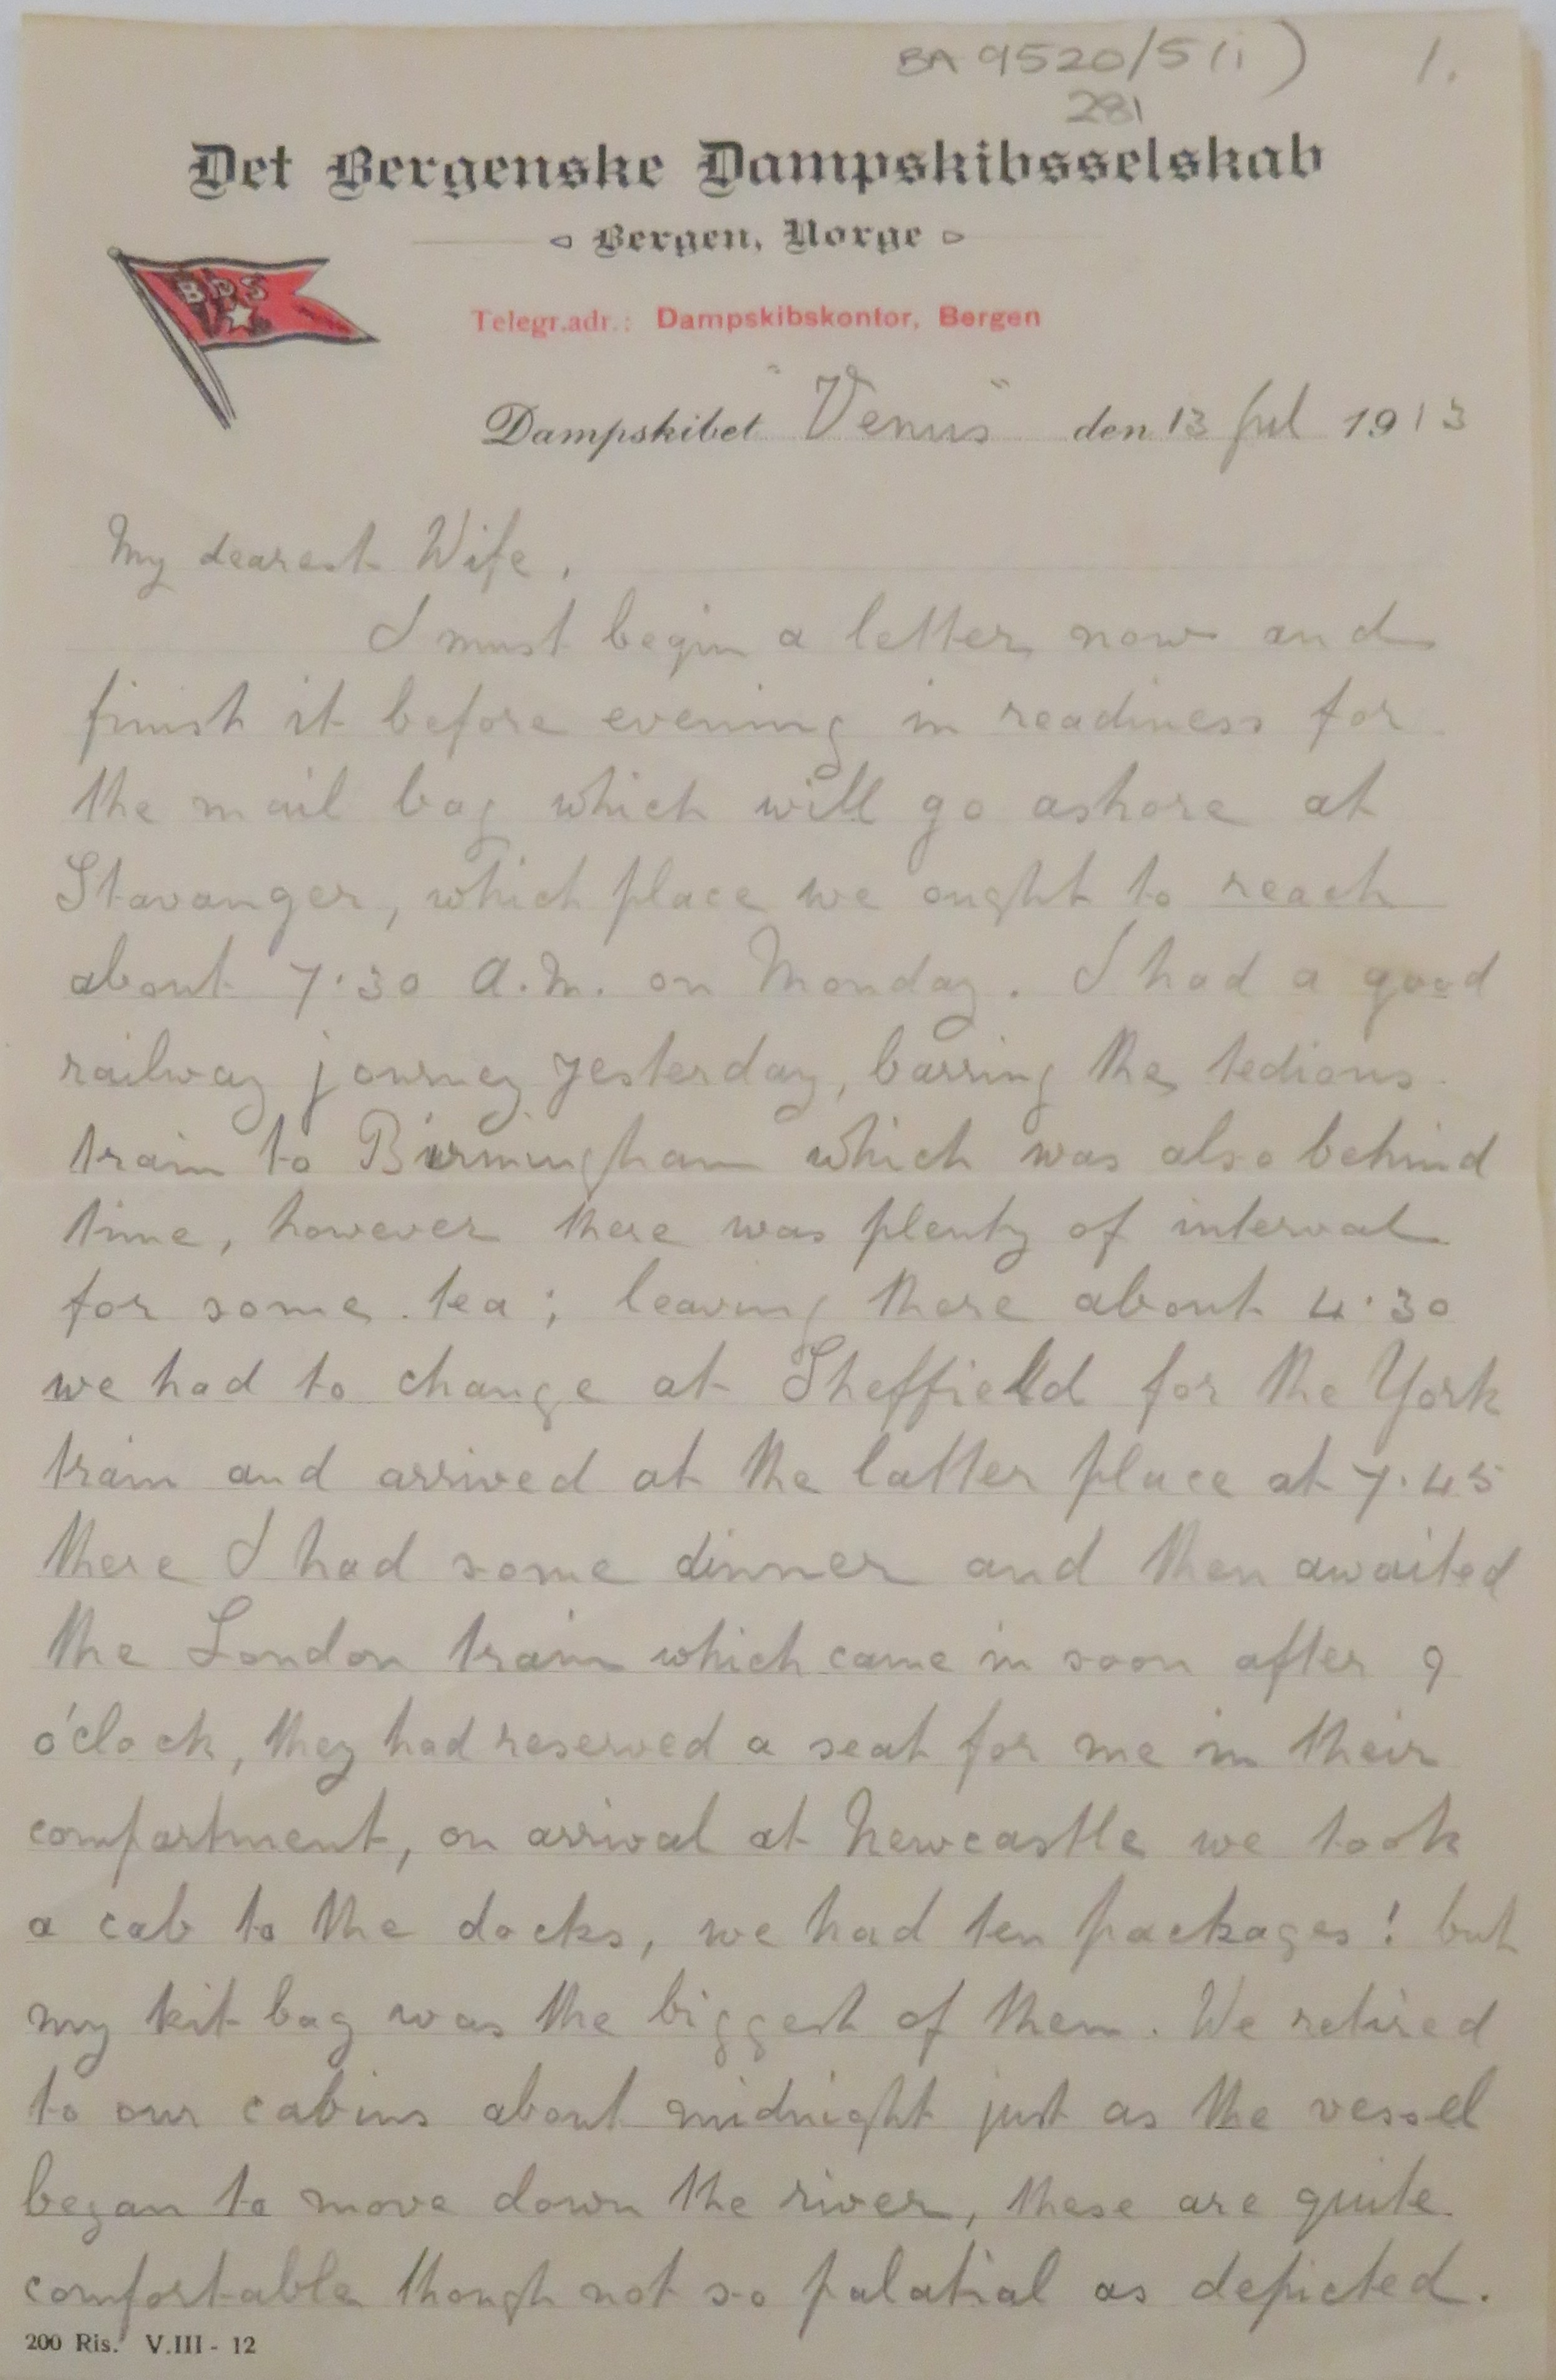 BA 9520/5 (i) 1.
281
Det Bergenske Dampskibsselskab
Bergen, Norge
BDS
Telegr.adr.: Dampskibskontor, Bergen
Dampskibet "Venus" den 13 Jul 1913
My dearest Wife,
I must begin a letter now and
finish it before evening in readiness for
the mail bag which will go ashore at
Stavanger, which place we ought to reach
about 7.30 A.M. on Monday. I had a good
railway journey yesterday, barring the tedious
train to Birmingham which was also behind
time, however there was plenty of interval
for some tea; leaving there about 4.30
we had to change at Sheffield for the York
train and arrived at the latter place at 7.45
there I had some dinner and then awaited
the London train which came in soon after 9
o'clock, they had reserved a seat for me in their
compartment, on arrival at Newcastle we took
a cab to the docks, we had ten packages! but
my kit bag was the biggest of them. We retired
to our cabins about midnight just as the vessel
began to move down the river, these are quite
comfortable though not so palatial as depicted.
200 Ris. V.III - 12